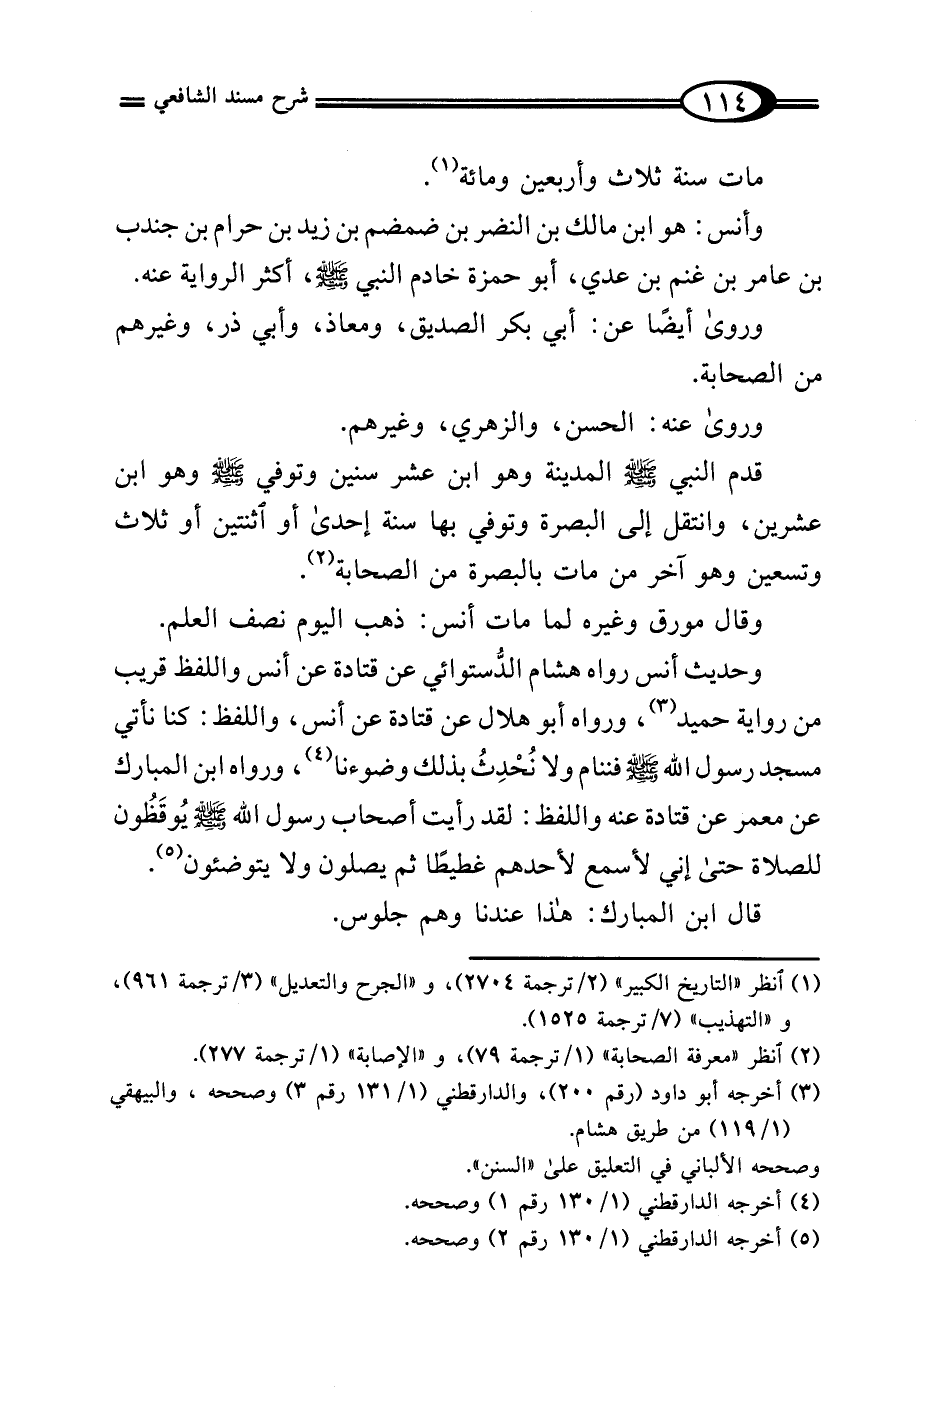 ١١٤ شرح مسند الشافعي
مات سنة ثلاث وأربعين ومائة(١).
وأنس: هو ابن مالك بن النضر بن ضمضم بن زيد بن حرام بن جندب
بن عامر بن غنم بن عدي، أبو حمزة خادم النبي ﷺ، أكثر الرواية عنه.
وروىٰ أيضًا عن: أبي بكر الصديق، ومعاذ، وأبي ذر، وغيرهم
من الصحابة.
وروىٰ عنه: الحسن، والزهري، وغيرهم.
قدم النبي ﷺ المدينة وهو ابن عشر سنين وتوفي ﷺ وهو ابن
عشرين، وانتقل إلى البصرة وتوفي بها سنة إحدىٰ أو ٱثنتين أو ثلاث
وتسعين وهو آخر من مات بالبصرة من الصحابة(٢).
وقال مورق وغيره لما مات أنس: ذهب اليوم نصف العلم.
وحديث أنس رواه هشام الدُّستوائي عن قتادة عن أنس واللفظ قريب
من رواية حميد(٣)، ورواه أبو هلال عن قتادة عن أنس، واللفظ: كنا نأتي
مسجد رسول الله ﷺ فننام ولا نُحْدِثُ بذلك وضوءنا(٤)، ورواه ابن المبارك
عن معمر عن قتادة عنه واللفظ: لقد رأيت أصحاب رسول الله ﷺ يُوقَظُون
للصلاة حتىٰ إني لأسمع لأحدهم غطيطًا ثم يصلون ولا يتوضئون(٥).
قال ابن المبارك: هٰذا عندنا وهم جلوس.
(١) ٱنظر «التاريخ الكبير» (٢/ ترجمة ٢٧٠٤)، و «الجرح والتعديل» (٣/ ترجمة ٩٦١)،
و «التهذيب» (٧/ ترجمة ١٥٢٥).
(٢) ٱنظر «معرفة الصحابة» (١/ ترجمة ٧٩)، و «الإصابة» (١/ ترجمة ٢٧٧).
(٣) أخرجه أبو داود (رقم ٢٠٠)، والدارقطني (١/ ١٣١ رقم ٣) وصححه ، والبيهقي
(١/ ١١٩) من طريق هشام.
وصححه الألباني في التعليق علىٰ «السنن».
(٤) أخرجه الدارقطني (١/ ١٣٠ رقم ١) وصححه.
(٥) أخرجه الدارقطني (١/ ١٣٠ رقم ٢) وصححه.